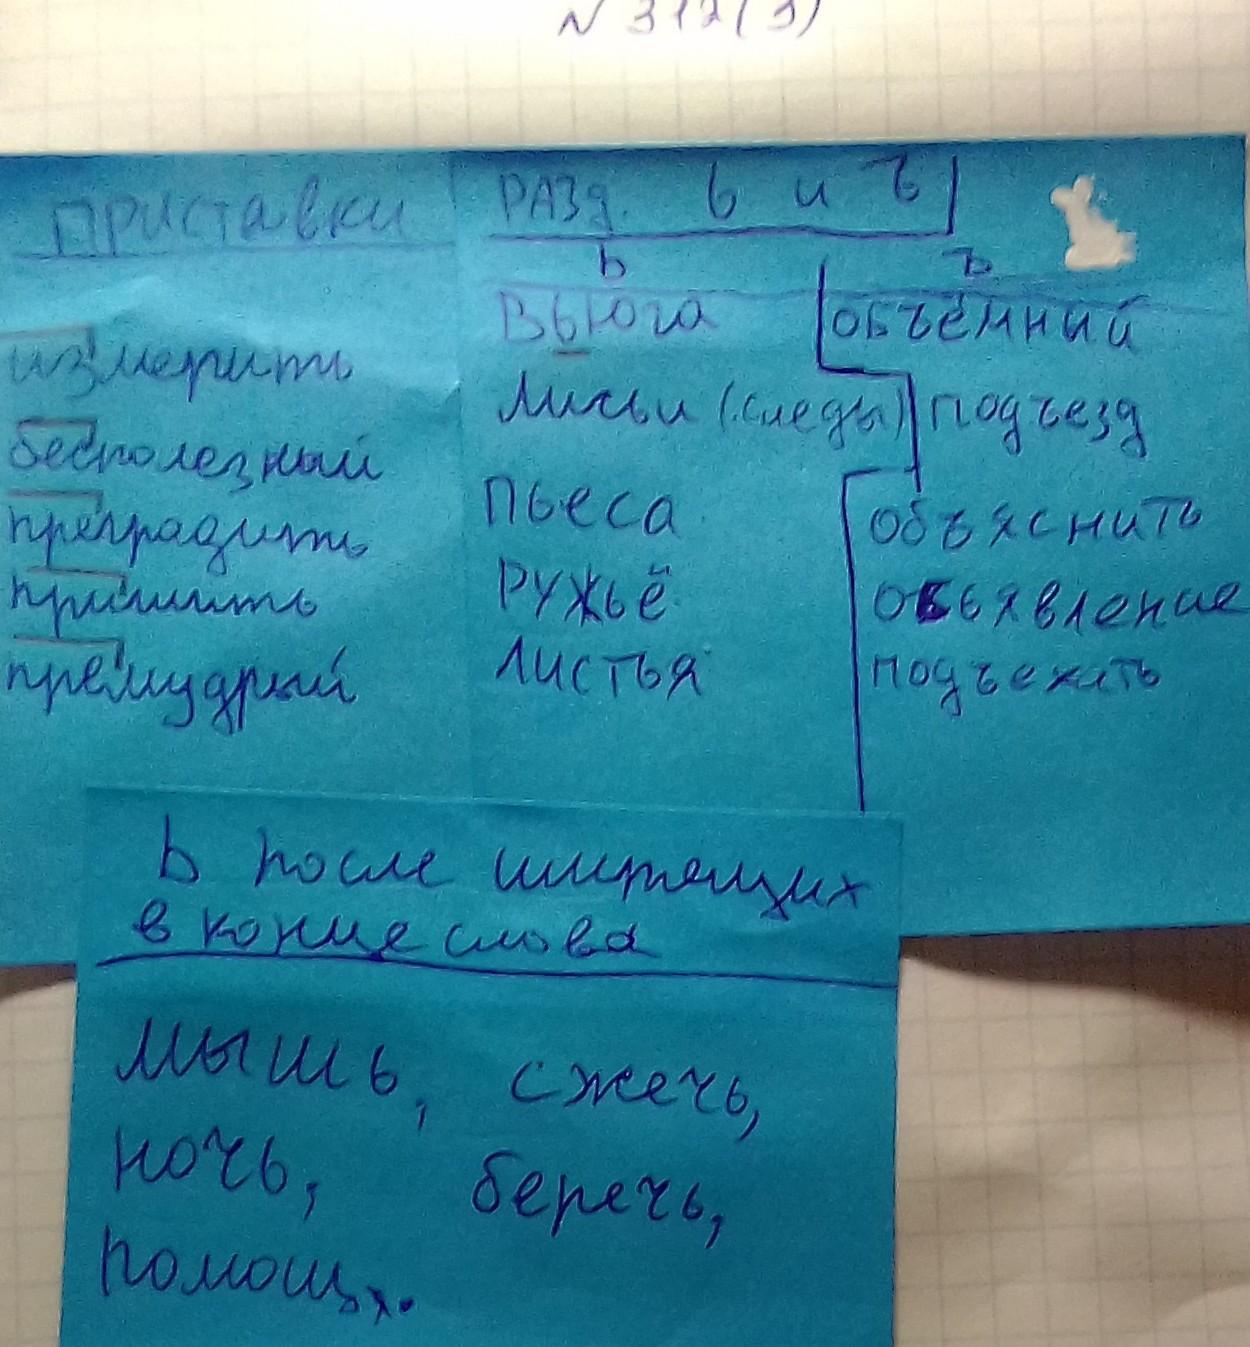 N 312(3)
Приставки
измерить
бесполезный
преградить
пришить
премудрый
РАЗД. Ь и Ъ
Ь
Ъ
Вьюга
объёмный
Лисьи (следы)
подъезд
пьеса
объяснить
Ружьё
обьявление
Листья
подъехать
Ь после шипящих
в конце слова
Мышь, сжечь,
ночь, беречь,
помощь.